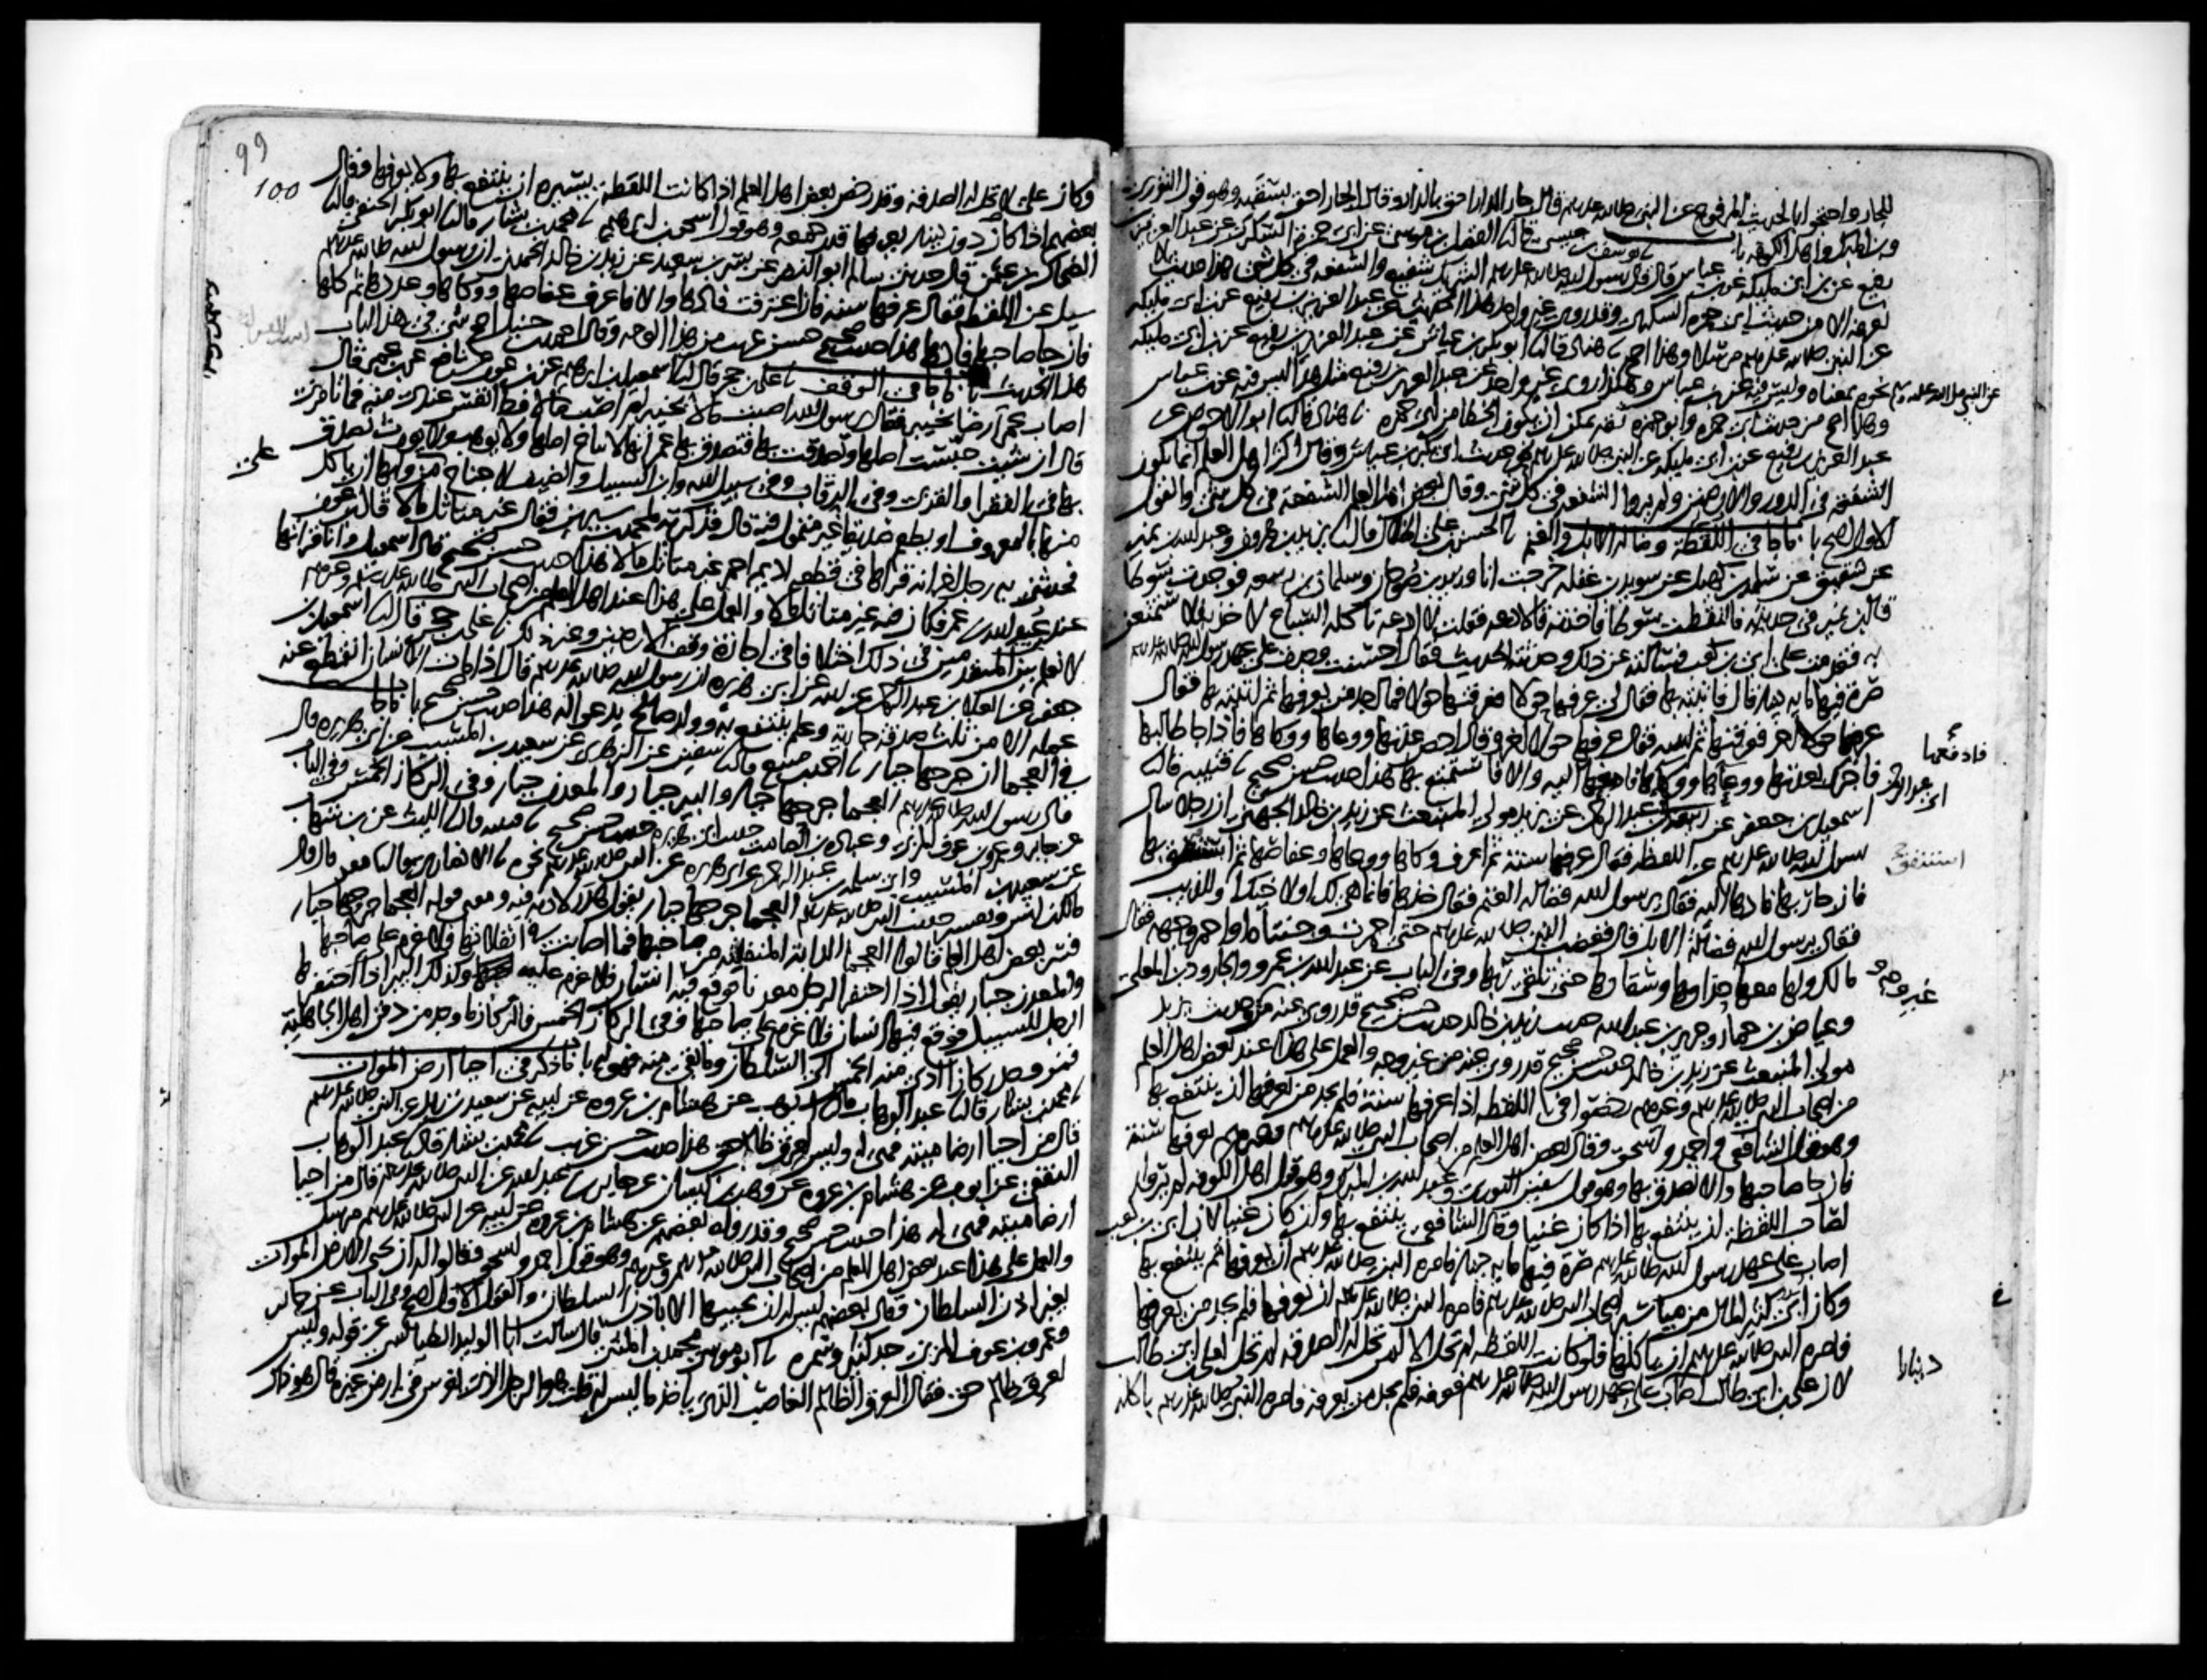 للجار واحتجوا بالحديث المرفوع عن النبي صلى الله عليه وسلم قال جار الدار احق بالدار وقال الجار احق بسقبه وهو قول الثوري
وابن المبارك واهل الكوفة باب يوسف بن عيسى قال نا الفضل بن موسى عن ابي حمزة السكري عن عبد العزيز بن
رفيع عن ابن ابي مليكة عن ابن عباس قال قال رسول الله صلى الله عليه وسلم الشريك شفيع والشفعة في كل شئ هذا حديث لا
نعرفه الا من حديث ابي حمزة السكري وقد روى غير واحد هذا الحديث عن عبد العزيز بن رفيع عن ابن ابي مليكة
عن النبي صلى الله عليه وسلم مرسلا وهذا اصح نا هناد قال نا ابو بكر بن عياش عن عبد العزيز بن رفيع عن ابن ابي مليكة
عن النبي صلى الله عليه وسلم نحوه بمعناه وليس فيه عن ابن عباس وهكذا روى غير واحد عن عبد العزيز بن رفيع مثل هذا ليس فيه عن ابن عباس
وهذا اصح من حديث ابي حمزة وابو حمزة ثقة يمكن ان يكون الخطا من غير ابي حمزة نا هناد قال نا ابو الاحوص عن
عبد العزيز بن رفيع عن ابن ابي مليكة عن النبي صلى الله عليه وسلم نحو حديث ابي بكر بن عياش وقال اكثر اهل العلم انما تكون
الشفعة في الدور والارضين ولم يروا الشفعة في كل شئ وقال بعض اهل العلم الشفعة في كل شئ والقول
الاول اصح باب ما جا في اللقطة وضالة الابل والغنم نا الحسن بن علي الخلال قال نا يزيد بن هرون وعبد الله بن نمير
عن سفين عن سلمة بن كهيل عن سويد بن غفلة خرجت انا وزيد بن صوحان وسلمان بن ربيعة فوجدت سوطا
قال ابن نمير في حديثه فالتقطت سوطا فاخذته قالا دعه فقلت لا ادعه تاكله السباع لاخذنه فلاستمتعن
به فقدمت على ابي بن كعب فسالته عن ذلك وحدثته الحديث فقال احسنت وجدت على عهد رسول الله صلى الله عليه وسلم
صرة فيها ماية دينار قال فاتيته بها فقال لي عرفها حولا فعرفتها حولا فما اجد من يعرفها ثم اتيته بها فقال
عرفها حولا اخر فعرفتها ثم اتيته فقال عرفها حولا اخر وقال احص عدتها ووعاها ووكاها فاذا جا طالبها
فاخبرك بعدتها ووعاها ووكاها فادفعها اليه والا فاستمتع بها هذا حديث حسن صحيح نا قتيبة قال نا
فادفعها
اسمعيل بن جعفر عن ربيعة بن ابي عبد الرحمن عن يزيد مولى المنبعث عن زيد بن خالد الجهني ان رجلا سال
ابي عبد الرحمن
رسول الله صلى الله عليه وسلم عن اللقطة فقال عرفها سنة ثم اعرف وكاها ووعاها وعفاصها ثم استنفق بها
استنفق
فان جا ربها فادها اليه فقال يرسول الله فضالة الغنم فقال خذها فانما هي لك او لاخيك او للذيب
فقال يرسول الله فضالة الابل قال فغضب النبي صلى الله عليه وسلم حتى احمرت وجنتاه او احمر وجهه فقال
ما لك ولها معها حذاوها وسقاوها حتى تلقى ربها وفي الباب عن عبد الله بن عمرو والجارود بن المعلى
وعياض بن حمار وجرير بن عبد الله حديث زيد بن خالد حديث حسن صحيح قد روى عنه من غير وجه حديث يزيد
غير وجه
مولى المنبعث عن زيد بن خالد حديث حسن صحيح قد روى عنه من غير وجه والعمل على هذا عند بعض اهل العلم
من اصحاب النبي صلى الله عليه وسلم وغيرهم رخصوا في اللقطة اذا عرفها سنة فلم يجد من يعرفها ان ينتفع بها
وهو قول الشافعي واحمد واسحق وقال بعض اهل العلم من اصحاب النبي صلى الله عليه وسلم وغيرهم يعرفها سنة
فان جا صاحبها والا تصدق بها وهو قول سفين الثوري وعبد الله بن المبارك وهو قول اهل الكوفة لم يروا
لصاحب اللقطة ان ينتفع بها اذا كان غنيا وقال الشافعي ينتفع بها وان كان غنيا لان ابي بن كعب
اصاب على عهد رسول الله صلى الله عليه وسلم صرة فيها ماية دينار فامره النبي صلى الله عليه وسلم ان يعرفها ثم ينتفع بها
وكان ابي كثير المال من مياسير اصحاب النبي صلى الله عليه وسلم فامره النبي صلى الله عليه وسلم ان يعرفها فلم يجد من يعرفها
فامره النبي صلى الله عليه وسلم ان ياكلها فلو كانت اللقطة لم تحل الا لمن تحل له الصدقة لم تحل لعلي بن ابي طالب
لان علي بن ابي طالب اصاب على عهد رسول الله صلى الله عليه وسلم فعرفه فلم يجد من يعرفه فامره النبي صلى الله عليه وسلم باكله
دينارا
99
100
وكان علي لا تحل له الصدقة وقد رخص بعض اهل العلم اذا كانت اللقطة يسيرة ان ينتفع بها ولا يعرفها وقال
بعضهم اذا كان دون دينار يعرفها قدر جمعة وهو قول اسحق بن ابرهيم نا محمد بن بشار قال نا ابو بكر الحنفي قال نا
الضحاك بن عثمن قال حدثني سالم ابو النضر عن بسر بن سعيد عن زيد بن خالد الجهني ان رسول الله صلى الله عليه وسلم
سيل عن اللقطة فقال عرفها سنة فان اعترفت فادها والا فاعرف عفاصها ووكاها وعددها ثم كلها
فان جا صاحبها فادها هذا حديث صحيح حسن غريب من هذا الوجه وقال احمد بن حنبل اصح شئ في هذا الباب
هذا الحديث باب ما جا في الوقف نا علي بن حجر قال نا اسمعيل بن ابرهيم عن ابن عون عن نافع عن ابن عمر قال
اصاب عمر ارضا بخيبر فقال يرسول الله اصبت مالا بخيبر لم اصب مالا قط انفس عندي منه فما تامرني
قال ان شيت حبست اصلها وتصدقت بها فتصدق بها عمر انها لا يباع اصلها ولا يوهب ولا يورث تصدق
بها في الفقرا والقربى وفي الرقاب وفي سبيل الله وابن السبيل والضيف لا جناح على من وليها ان ياكل
على
منها بالمعروف او يطعم صديقا غير متمول فيه قال فذكرته لمحمد بن سيرين فقال غير متاثل مالا قال ابن عون
فحدثني به رجل اخر انه قراها في قطعة اديم احمر غير متاثل مالا هذا حديث حسن صحيح قال اسمعيل وانا قراتها
عند ابن عبيد الله بن عمر فكان فيه غير متاثل مالا والعمل على هذا عند اهل العلم من اصحاب النبي صلى الله عليه وسلم وغيرهم
لا نعلم بين المتقدمين في ذلك اختلافا في اجازة وقف الارضين وغير ذلك نا علي بن حجر قال نا اسمعيل بن
جعفر عن العلا بن عبد الرحمن عن ابيه عن ابي هريرة ان رسول الله صلى الله عليه وسلم قال اذا مات الانسان انقطع عنه
عمله الا من ثلث صدقة جارية وعلم ينتفع به وولد صالح يدعو له هذا حديث حسن صحيح باب ما جا
في العجما ان جرحها جبار نا احمد بن منيع قال نا سفين عن الزهري عن سعيد بن المسيب عن ابي هريرة قال
قال رسول الله صلى الله عليه وسلم العجما جرحها جبار والبير جبار والمعدن جبار وفي الركاز الخمس وفي الباب
عن جابر وعمرو بن عوف المزني وعبادة بن الصامت حديث ابي هريرة حديث حسن صحيح نا قتيبة قال نا الليث عن ابن شهاب
عن سعيد بن المسيب وابي سلمة بن عبد الرحمن عن ابي هريرة عن النبي صلى الله عليه وسلم نحوه نا الانصاري قال نا معن قال قال
مالك بن انس وتفسير حديث النبي صلى الله عليه وسلم العجما جرحها جبار يقول هدر لا دية فيه ومعنى قوله العجما جرحها جبار
فسر بعض اهل العلم قالوا العجما الدابة المنفلتة من صاحبها فما اصابت في انفلاتها فلا غرم على صاحبها
والمعدن جبار يقول اذا احتفر الرجل معدنا فوقع فيه انسان فلا غرم عليه وكذلك البير اذا احتفرها
الرجل للسبيل فوقع فيها انسان فلا غرم على صاحبها وفي الركاز الخمس فالركاز ما وجد من دفن اهل الجاهلية
فمن وجد ركازا ادى منه الخمس الى السلطان وما بقي منه فهو له باب ما ذكر في احيا ارض الموات
نا محمد بن بشار قال نا عبد الوهاب عن هشام بن عروة عن ابيه عن سعيد بن زيد عن النبي صلى الله عليه وسلم
قال من احيا ارضا ميتة فهي له وليس لعرق ظالم حق هذا حديث حسن غريب نا محمد بن بشار قال نا عبد الوهاب
الثقفي عن ايوب عن هشام بن عروة عن وهب بن كيسان عن جابر بن عبد الله عن النبي صلى الله عليه وسلم قال من احيا
ارضا ميتة فهي له هذا حديث حسن صحيح وقد رواه بعضهم عن هشام بن عروة عن ابيه عن النبي صلى الله عليه وسلم مرسلا
والعمل على هذا عند بعض اهل العلم من اصحاب النبي صلى الله عليه وسلم وغيرهم وهو قول احمد واسحق وقالوا له ان يحيي الارض الموات
بغير اذن السلطان وقال بعضهم ليس له ان يحييها الا باذن السلطان والقول الاول اصح وفي الباب عن جابر
وعمرو بن عوف المزني جد كثير وسمرة نا ابو موسى محمد بن المثنى قال سالت ابا الوليد الطيالسي عن قوله وليس
لعرق ظالم حق فقال العرق الظالم الغاصب الذي ياخذ ما ليس له قلت هو الرجل الذي يغرس في ارض غيره قال هو ذاك